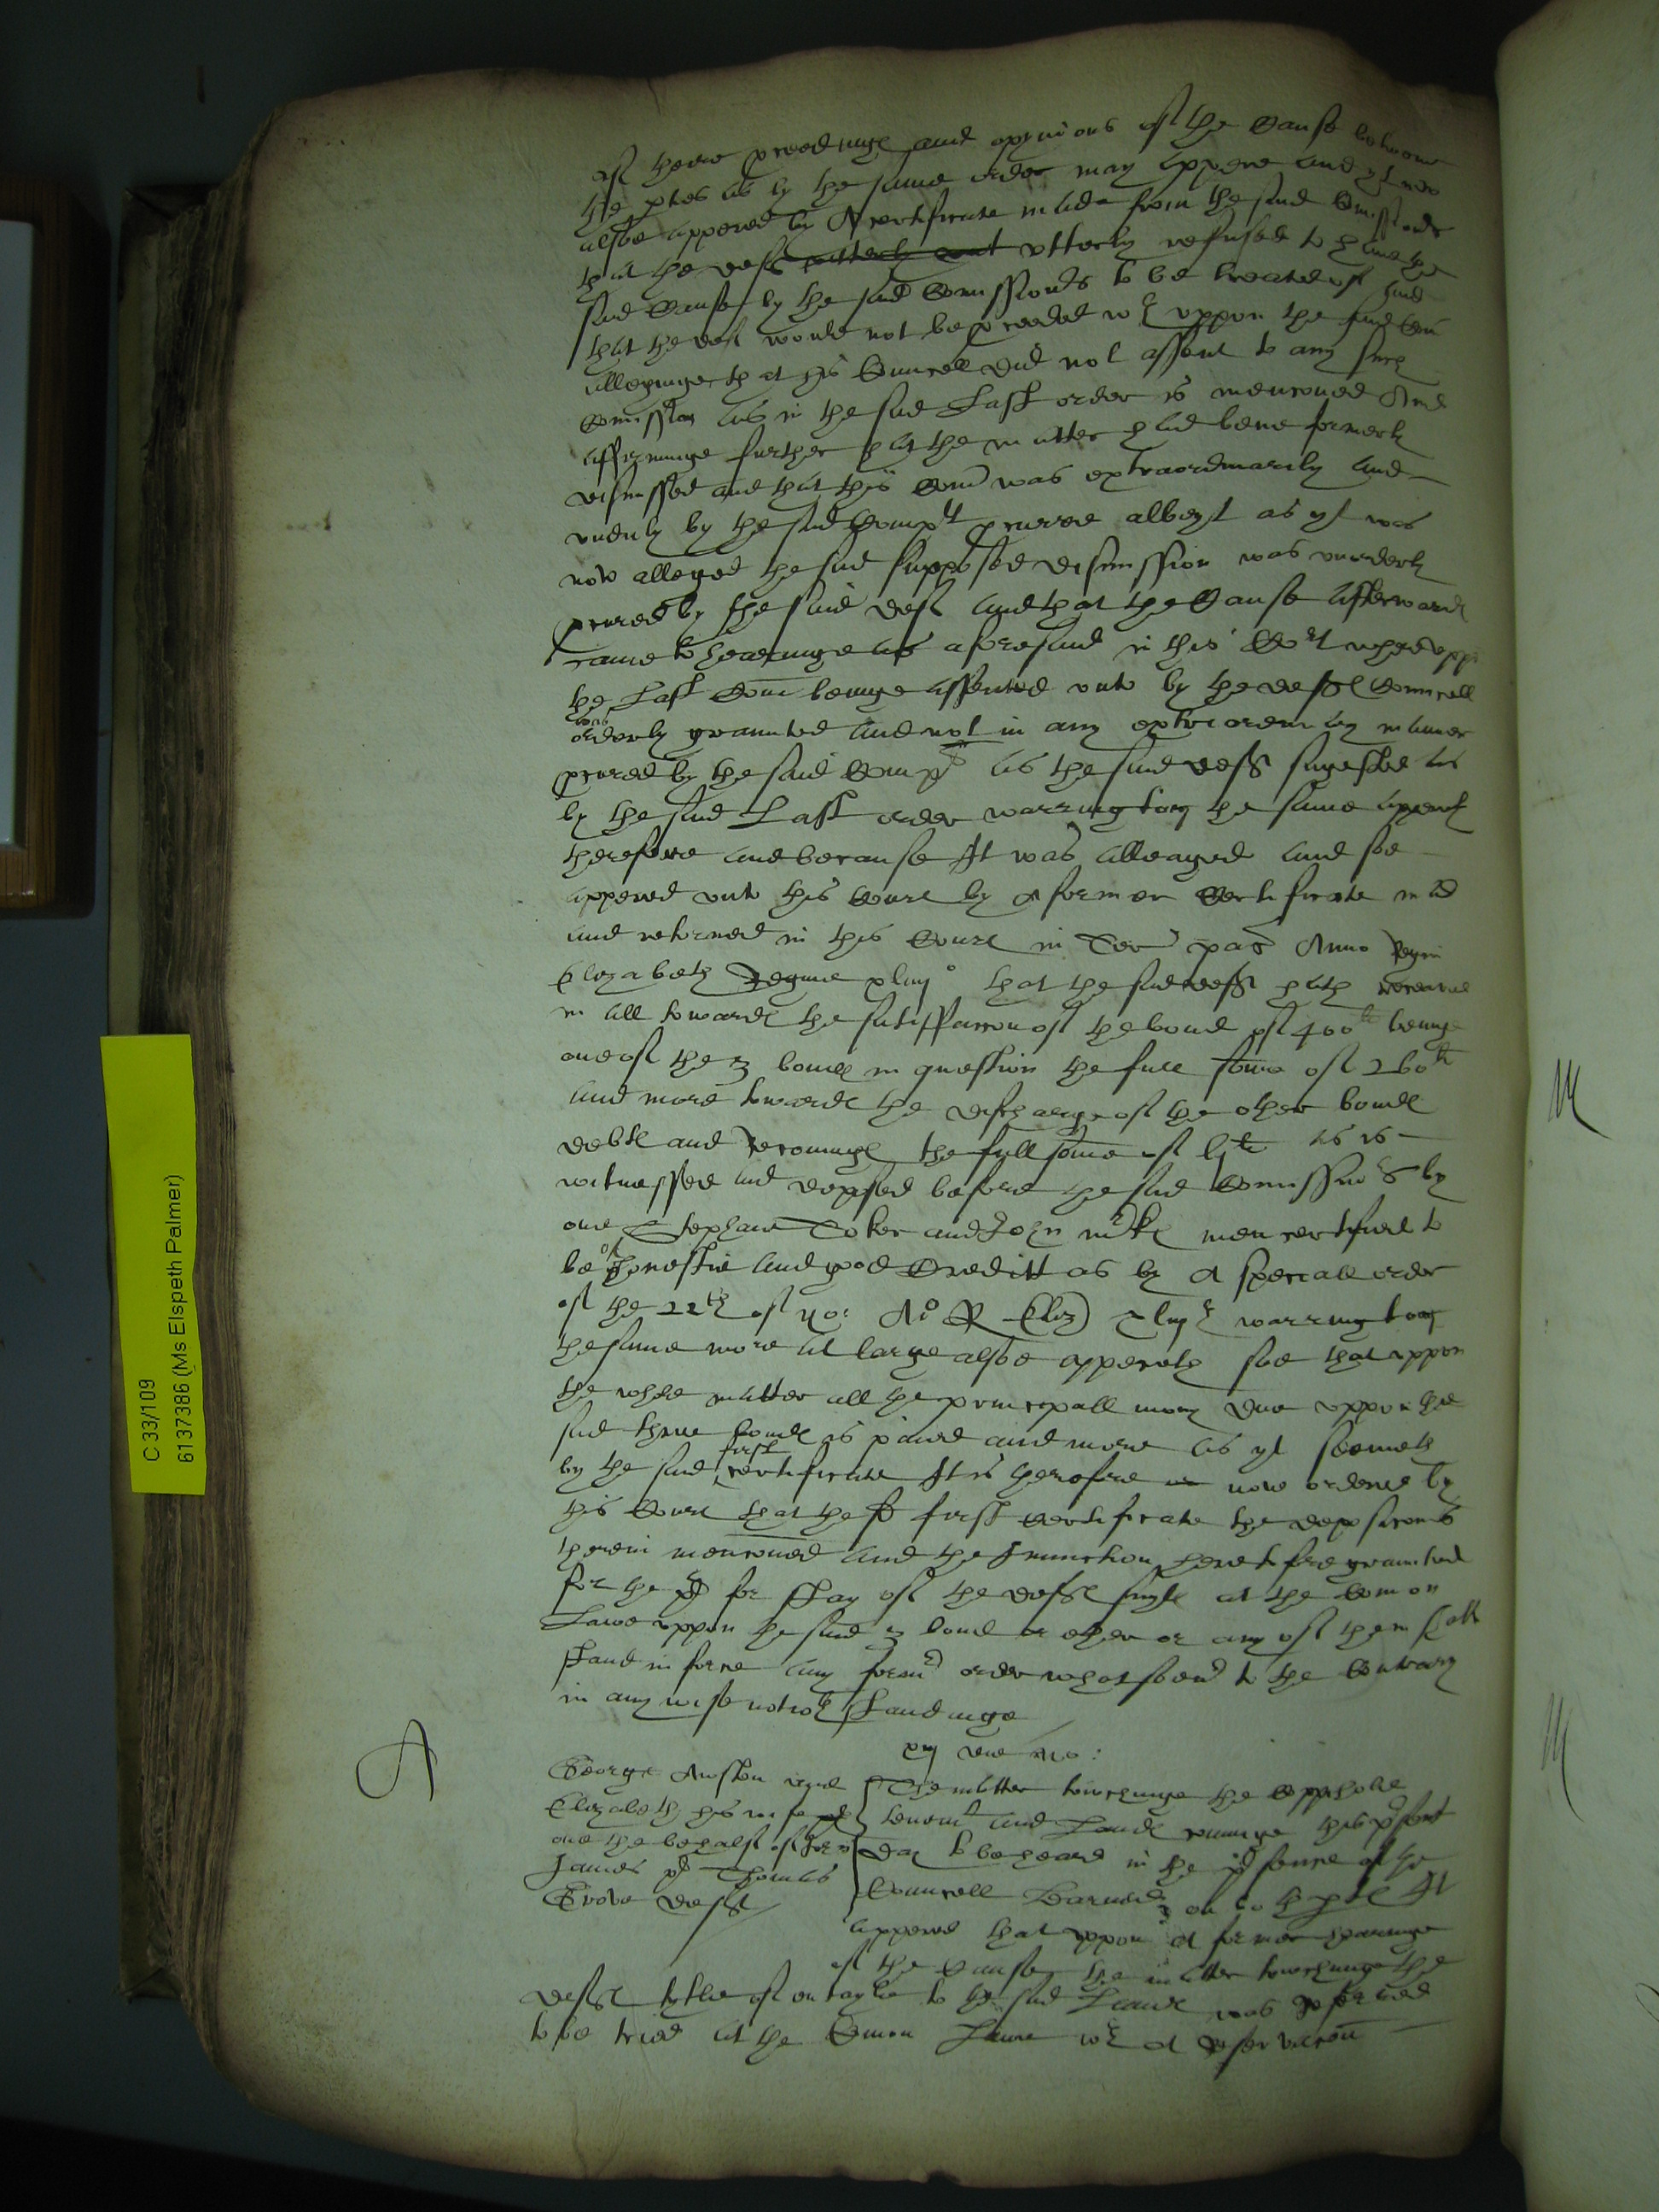 of there proceedinges and opynions of the Cause betwene
the pties as by the same order may appere and yt now
alsoe appered by A certificate made from the said Comissioners
that the deft utterly utterly refused to have the
said Cause by the said Comissioners to be treated of and
that the deft would not be proceeded wth uppon the said Com
alleginge that his Councell did not assent to any such
Comission as in the said Last order is mencioned And
affirminge further that the matter had bene formerly
dismissed and that this Com was extraordinarily and
unduly by the said Complt procured albeyt as yt was
now alleged the said supposed dismission was unorderly
procured by the said deft and that the Cause afterwards
came to hearinge as aforesaid in this Cort
the Last Com beinge assented unto by the defts Councell
was
orderly graunted and not in any extraordinary manner
procured by the said Complt as the said deft sugested as
by the said Last order warrington the same apperith
therefore and because It was alleaged and soe
appered unto this Court by A former Certificate mad
and retorned in this Court in Ter pas Anno Regni
Elizabeth Regine xlmo that the said deft hath receaved
in all towards the satisfaccon of the bond of 400li beinge
one of the 3 bonds in question the full some of 260li
and more towards the discharge of the other bonds
debts and the full some of as is
witnessed and deposed before the said Comissioners by
one Stephane Toker and John men certified to
be of honestie and good Creditt as by A speciall order
of the 22th of No: Ao R Eliz warrington
the same more at large alsoe appereth soe that uppon
the whole matter all the principall mony due uppon the
said three bonds is paied and more as yt seemeth
by the said first certificate It is therefore now ordered by
this Court that the first certificate the deposicons
therein mencioned and the Iniunction heretofore graunted
for the plt for stay of the defts suyte at the Comon
Lawe uppon the said 3 bonds or ether or any of them shall
stand in force any former order whatsoever to the Contrary
in any wise notwthstandinge
A
die No:
George Auston and
Elizabeth his wife
one the behalf of
James plt Thomas
Grove deft
The matter towchinge the Coppihold
tenemt and Lands cominge this psent
day to be heard in the psence of the
Councell Larned on both ptes It
appered that uppon A former hearinge
of the Cause the matter towchinge the
defts tytle of entayle to the said Lands was referred
to be tried at the Comon Lawe wth A Reservacon
C 33/109
6137386 (Ms Elspeth Palmer)